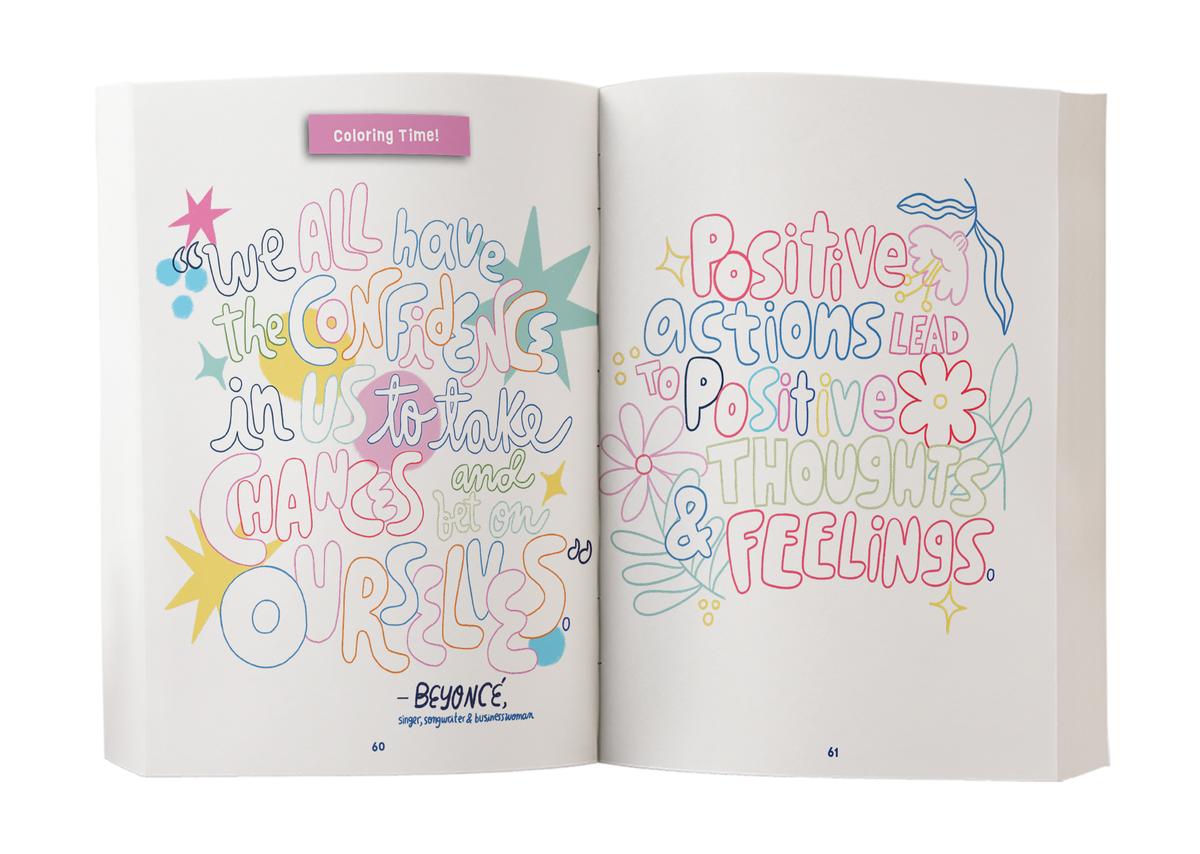 Coloring Time!
“We ALL have
the CONFidENCE
in US to take
CHANCES and
bet on
OURSELVES.”
– BEYONCÉ,
singer, songwriter & businesswoman
60
Positive
actions LEAD
TO Positive
THOUGHTS
& FEELiNgS.
61